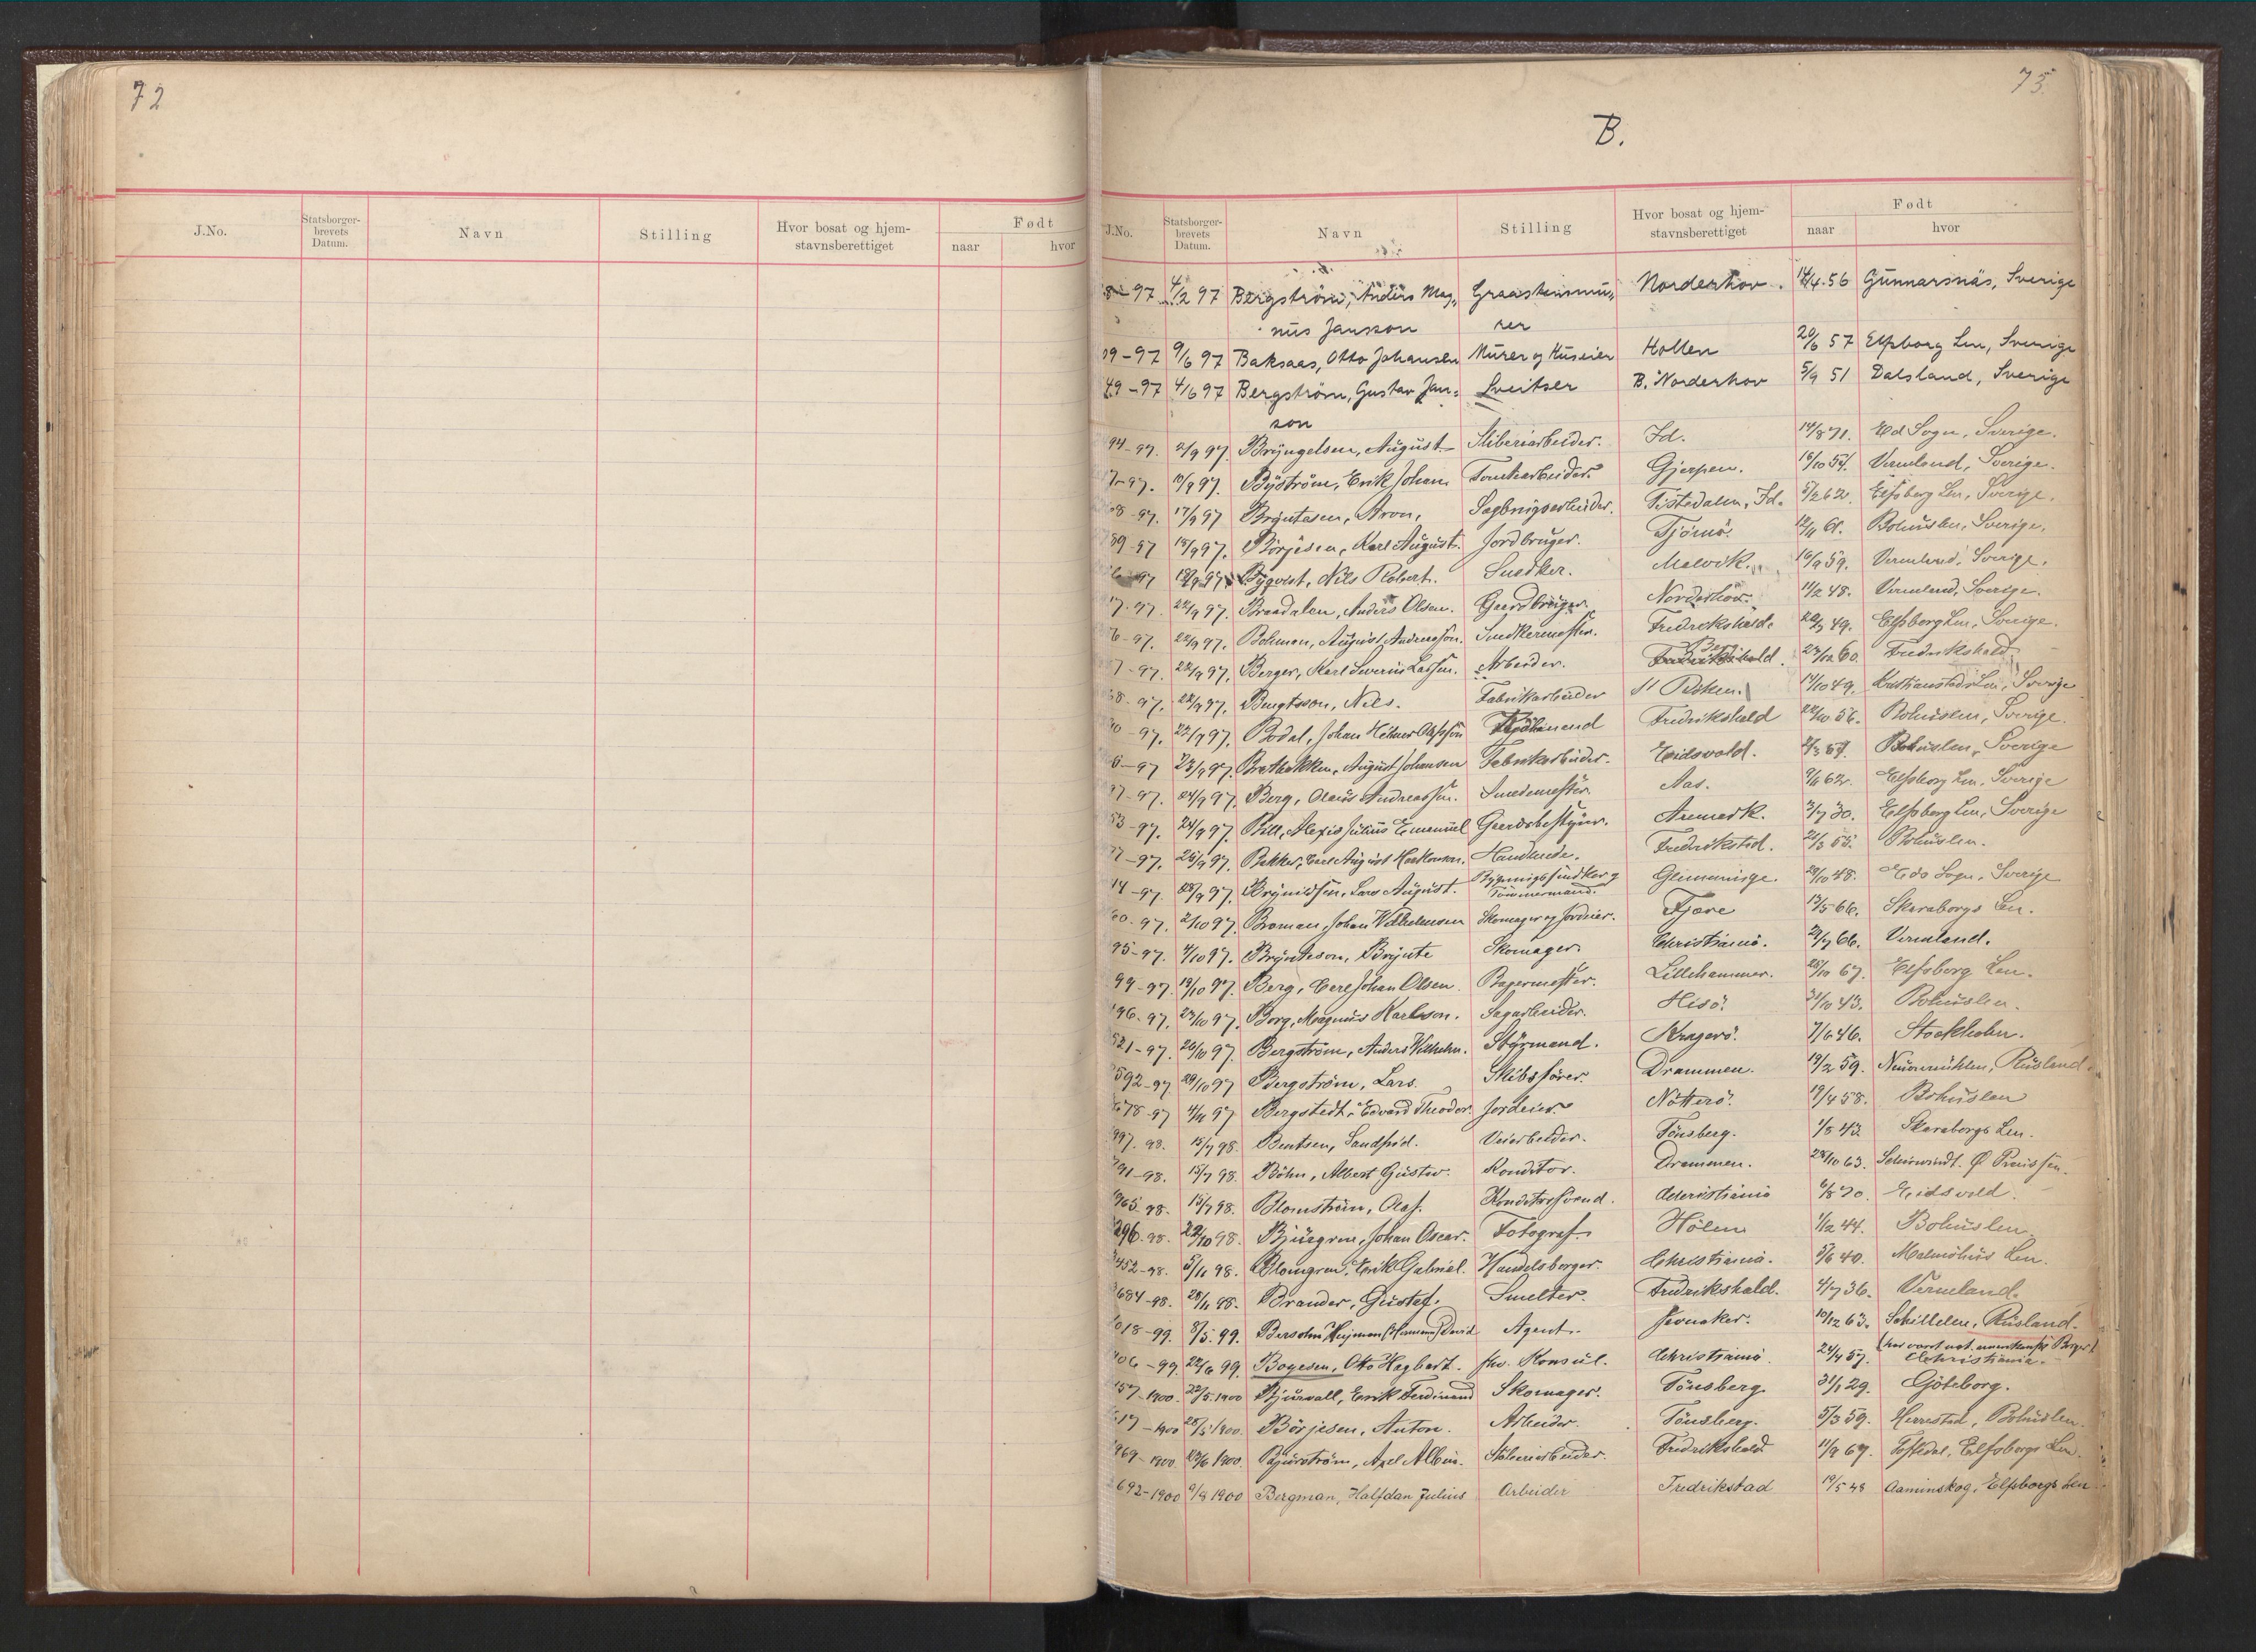 72
J.No.
Statsborger-
brevets
Datum.
Navn
Stilling
Hvor bosat og hjem-
stavnsberettiget
Født
naar
hvor
75.
B.
J.No.
Statsborger-
brevets
Datum.
Navn
Stilling
Hvor bosat og hjem-
stavnsberettiget
Født
naar
hvor
97 4/2 97 Bergström, Anders Mag„ Graastensmu„ Norderhov. 14/4.56 Gunnarsnäs, Sverige
nus Jansson rer
09-97 9/6 97 Baksaas, Otto Johansen Murer og Huseier Hollen 20/6 57 Elfsborg Len, Sverige
49-97 4/6 97 Bergström, Gustav Jan= Sveitser B. Norderhov 5/9 51 Dalsland, Sverige
son
94-97. 2/9 97. Bryngelsen, August Sliberiarbeider. Id. 14/8 71. Ed Sogn, Sverige.
7-97. 10/9 97. Byström, Erik Johan Tomtearbeider Gjerpen. 16/10 54. Vermland, Sverige.
08-97. 17/9 97 Bryntesen, Aron, Sagbrugsarbeider. Tistedalen, Id. 5/2 62. Elfsborg Len, Sverige.
89-97 18/9 97. Börjesen, Karl August. Jordbruger. Tjömö. 12/11 61. Bohuslen, Sverige.
97 Byqvist, Nils Robert. Snedker. Malvik. 16/9 59. Vermland, Sverige.
17-97. 22/9 97. Braadalen, Anders Olsen. Gaardbruger. Norderhov. 11/2 48. Vermland, Sverige.
6-97. 22/9 97. Bohman, August Andreassen. Snedkermester. Fredrikshald. 20/3 49. Elfsborg Len, Sverige.
7-97. 22/9 97. Berger, Karl Severin Larsen. Arbeider. Fredrikshald. 27/12 60. Fredrikshald.
8-97. 22/9 97. Bengtsson, Nils. Fabrikarbeider 14/10 49. Kristianstads Len, Sverige
0-97. 22/9 97. Bodal, Johan Hilmer Olafsson Fredrikshald 22/10 56. Bohuslen, Sverige.
6-97 23/9 97. Brathakken, August Johansen Fabrikarbeider. Eidsvold. Bohuslen, Sverige
7-97. 24/9 97. Berg, Olaus Andreassen. Smedemester. Aas. 9/6 62. Elfsborg Len, Sverige
53-97. 24/9 97. Bill, Alexis Julius Emanuel Gaardsbestyrer. Aremark. 3/7 30. Elfsborg Len, Sverige
7-97. 25/9 97. Bekker, Carl August Haakonsen. Handlende. Fredrikstad. 21/3 55. Bohuslen.
14-97. 28/9 97. Brynildsen, Lars August. Bygningssnedker g Tømmermand. Glemminge. 29/10 48. Eds Sogn, Sverige
60-97. 2/10 97. Broman, Johan Wilhelmsen Skomager og Jordeier. Fjære 13/5 66. Skaraborgs Len.
95-97. 4/10 97. Brynteson, Brynte Skomager. Christiania. 21/7 66. Vermland.
99-97. 19/10 97. Berg, Carl Johan Olsen. Bagermester. Lillehammer. 25/10 67. Elfsborg Len.
196-97. 23/10 97. Borg, Magnus Karlsson. Sagarbeider. Hisö. 31/10 43. Bohuslen.
521-97. 26/10 97. Bergström, Anders Wilhelm. Styrmand. Kragerö. 7/6 46. Stockholm.
592-97. 29/10 97 Bergström, Lars. Skibsfører. Drammen. 19/2 59. Neuermühlen, Rusland.
678-97 4/11 97 Bergstedt, Edvard Theodor. Jordeier. Nötterö. 19/4 58. Bohuslen
997-98. 15/7 98. Bentsen, Sandfrid. Veiarbeider. Tönsberg. 1/8 43. Skaraborgs Len.
791-98. 15/7 98. Böhn, Albert Gustav. Konditor. Drammen. 28/10 63. Schirwindt. Ø Preussen.
965-98. 15/7 98. Blomström, Olaf. Konditorsvend. Christiania 6/8 70. Eidsvold.
296-98. 22/10 98. Bjurgren, Johan Oscar. Fotograf. Hölen 1/12 44. Bohuslen
452-98. 5/11 98. Blomgren, Erik Gabriel. Handelsborger. Christiania. 5/6 40. Malmöhus Len.
684-98. 28/11 98. Brander, Gustaf. Smelter. Fredrikshald. 4/7 36. Vermland.
1018-99. 8/5. 99. Bersohn Hejman (Herman) David Agent. Jevnaker. 10/12 63. Schillelen, Rusland.
406-99. 22/6 99. Boyesen, Otto Hagbart. fhv. Konsul. Christiania. 24/4 57. (har været nat. amerikansk Borger) Christiania.
157-1900. 22/5-1900 Bjurvall, Erik Ferdinand Skomager. Tönsberg. 31/1 29. Göteborg.
17-1900 28/5 1900. Börjesen, Anton. Arbeider. Tönsberg. 5/3 59. Herrestad, Bohuslen.
969-1900. 23/6 1900. Bjurström, Axel Albin. Sliberiarbeider. Fredrikshald 11/9 67. Elfsborgs Len.
692-1900 9/8 1900 Bergman, Halfdan Julius Arbeider Fredrikstad 19/5 48 Aaminskog, Elfsborgs Len